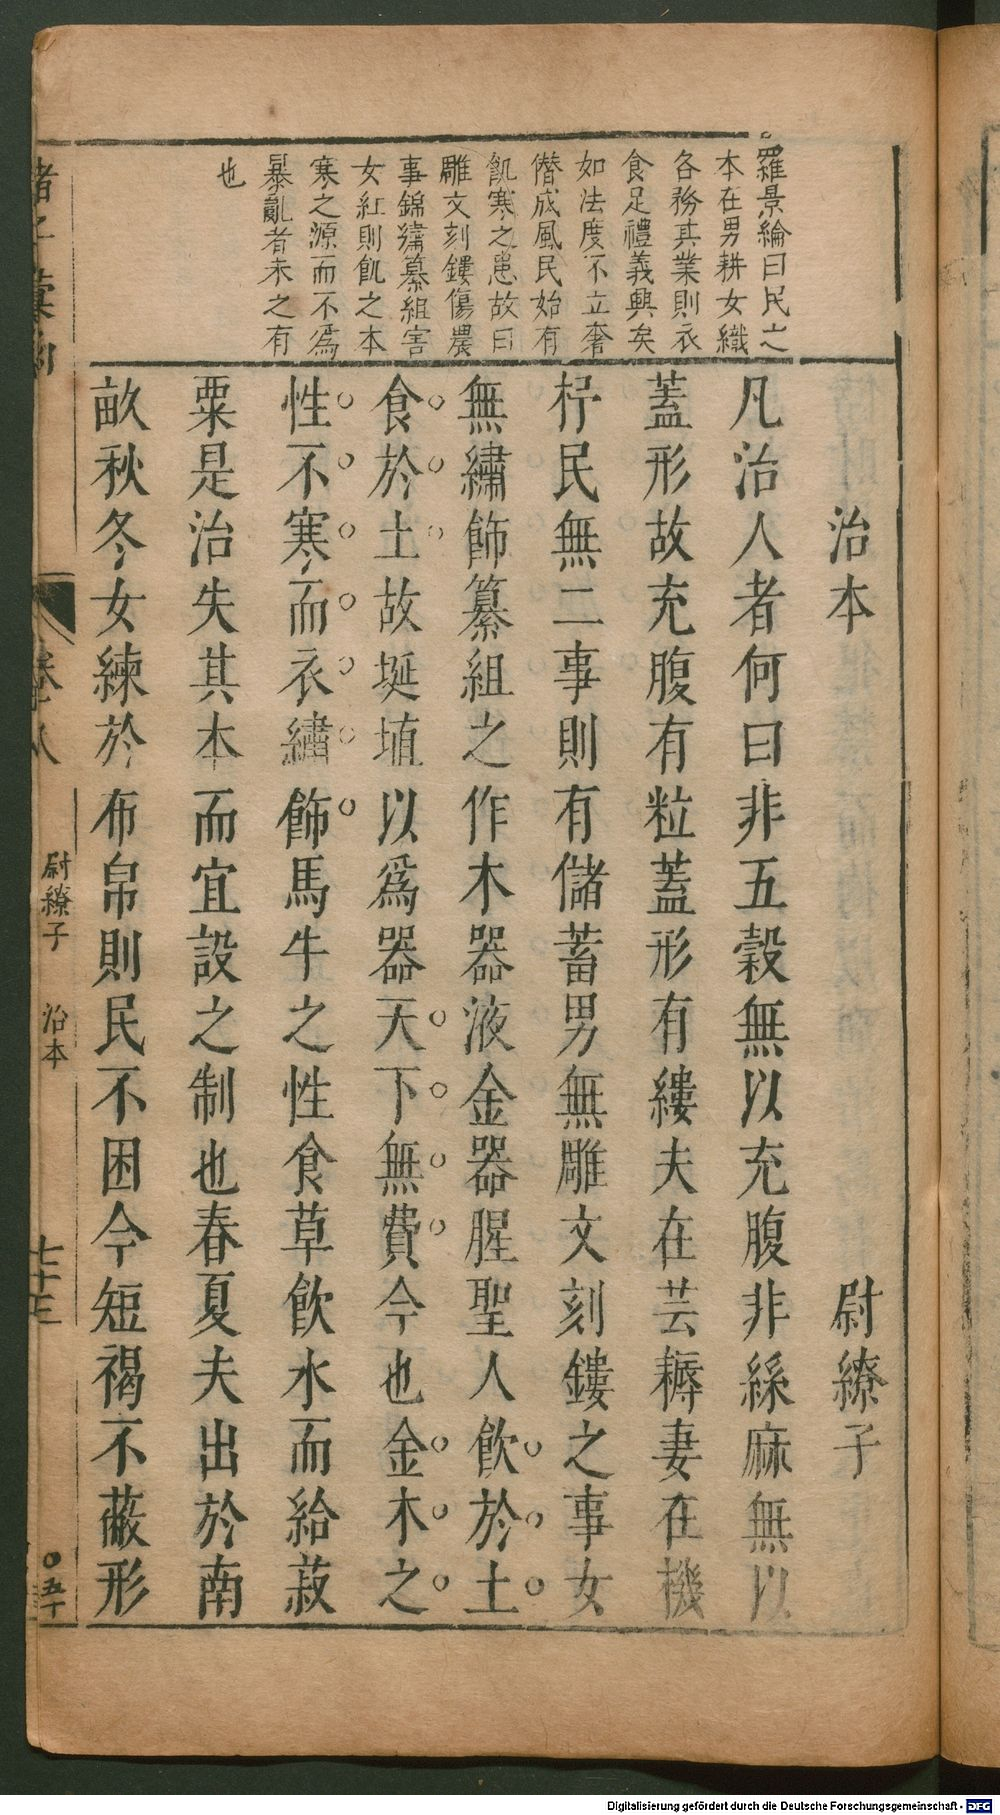 羅景綸曰民之
本在男耕女織
各務其業則衣
食足禮義興矣
如法度不立奢
僭成風民始有
飢寒之患故曰
雕文刻鏤傷農
事錦繡纂組害
女紅則飢之本
寒之源而不為
暴亂者未之有
也
治本　尉繚子
凡治人者何曰非五穀無以充腹非絲麻無以
蓋形故充腹有粒蓋形有縷夫在芸耨妻在機
杼民無二事則有儲蓄男無雕文刻鏤之事女
無繡飾纂組之作木器液金器腥聖人飲於土
食於土故埏埴以爲器天下無費今也金木之
性不寒而衣繡飾馬牛之性食草飲水而給菽
粟是治失其本而宜設之制也春夏夫出於南
畝秋冬女練於布帛則民不困今短褐不蔽形
卷十八
尉繚子　治本
七十三
Digitalisierung gefördert durch die Deutsche Forschungsgemeinschaft - DFG